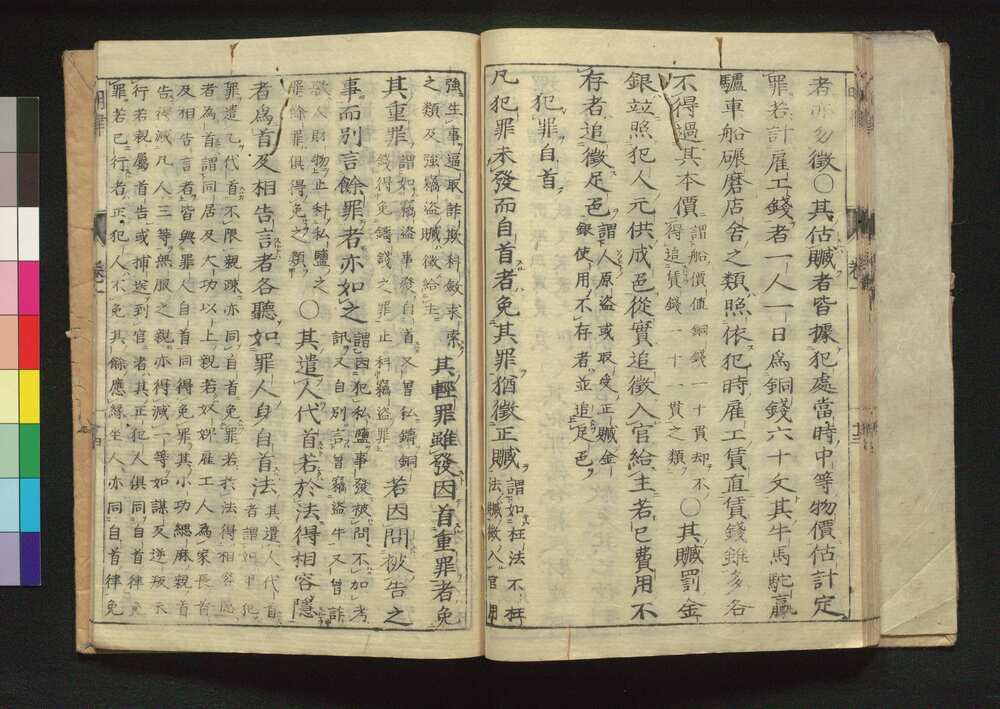 者亦勿徵○其估贓者皆據犯處當時中等物價估計定
罪若計雇工錢者一人一日爲銅錢六十文其牛馬駝驘
驢車船碾磨店舍之類照依犯時雇工賃直賃錢雖多各
不得過其本價謂船價值銅錢一十貫却不得追賃錢一十一貫之類○其贓罰金
銀並照犯人元供成色從實追徵入官給主若已費用不
存者追徵足色謂人原盜或取受正贓金銀使用不存者並追足色
犯罪自首
凡犯罪未發而自首者免其罪猶徵正贓謂如枉法不枉法贓徵入官用
強生事逼取詐欺科斂求索之類及強竊盜贓徵給主其輕罪雖發因首重罪者免
其重罪謂如竊盜事發自首又曾私鑄銅錢得免鑄錢之罪止科竊盜罪若因問被告之
事而別言餘罪者亦如之謂因犯私鹽事發被問不加考訊又自別言曾竊盜牛又曾詐
欺人財物止科私鹽之罪餘罪俱得免之類○其遣人代首若於法得相容隱
者爲首及相告言者各聽如罪人身自首法其遣人代首者謂如甲犯
罪遣乙代首不限親疎亦同自首免罪若於法得相容隱
者為首謂同居及大功以上親若奴婢雇工人為家長首
及相告言者皆與罪人自首同得免罪其小功緦麻親首
告得減凡人三等無服之親亦得減一等如謀反逆叛未
行若親屬首告或捕送到官者其正犯人俱同自首律免
罪若已行者正犯人不免其餘應緣坐人亦同自首律免